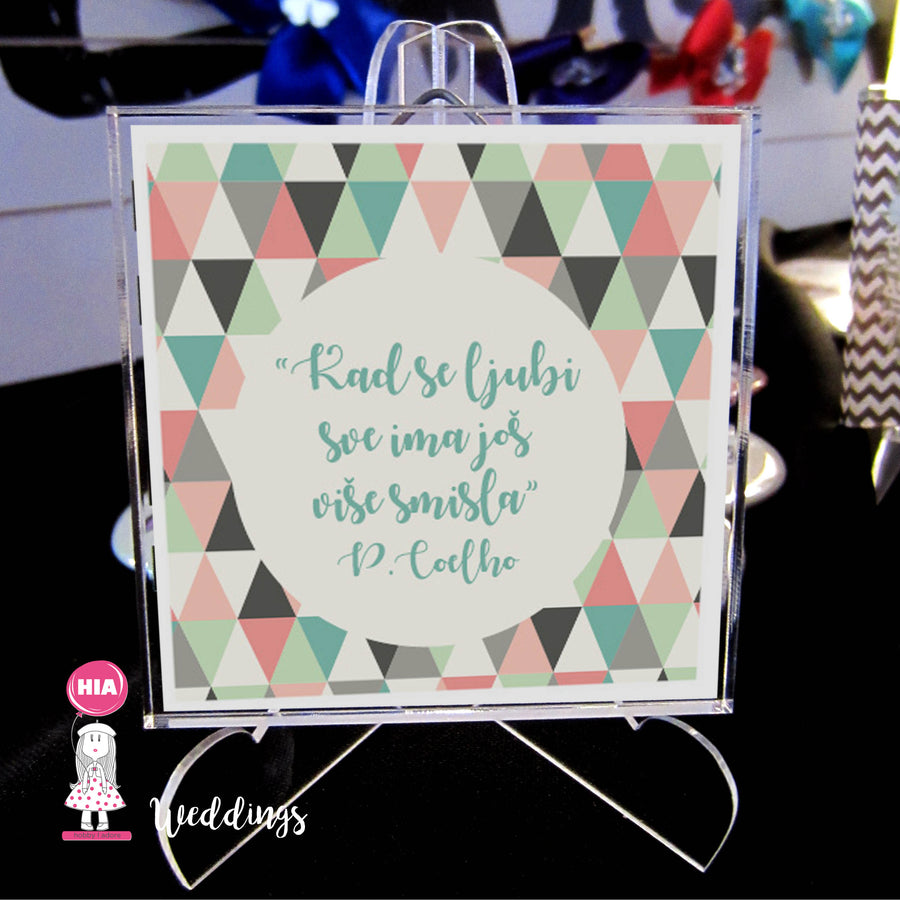 “Kad se ljubi
sve ima još
više smisla”
P. Coelho
HIA
hobby I adore
Weddings